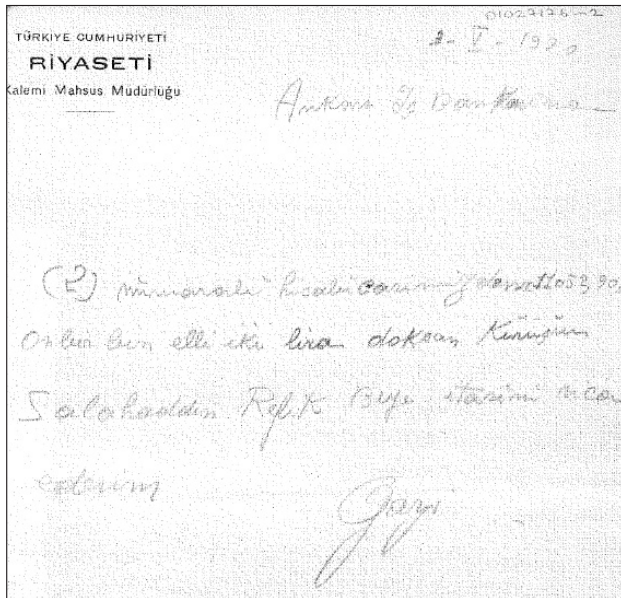 01027176-2
TÜRKİYE CUMHURİYETİ
RİYASETİ
Kalemi Mahsus Müdürlüğü
Ankara İş Bankasına
(2) numaralı hisabı carimizden
On bir bin elli iki lira doksan kuruşun
Salahaddin Refik Beye itasını rica
ederim
Gazi